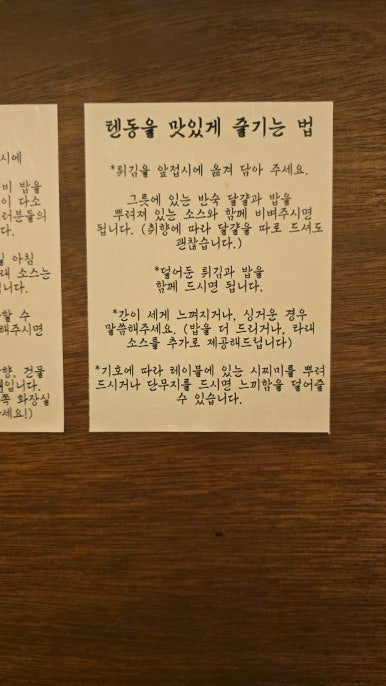 시에
비 밥을
이 다소
러분들의
다.
일 아침
래 소스는
니다.
할 수
해주시면
향, 건물
쪽 화장실
세요!)
텐동을 맛있게 즐기는 법
*튀김을 앞접시에 옮겨 담아 주세요.
그릇에 있는 반숙 달걀과 밥을
뿌려져 있는 소스와 함께 비벼주시면
됩니다. (취향에 따라 달걀을 따로 드셔도
괜찮습니다.)
*덜어둔 튀김과 밥을
함께 드시면 됩니다.
*간이 세게 느껴지거나, 싱거운 경우
말씀해주세요. (밥을 더 드리거나, 타래
소스를 추가로 제공해드립니다)
*기호에 따라 테이블에 있는 시찌미를 뿌려
드시거나 단무지를 드시면 느끼함을 덜어줄
수 있습니다.